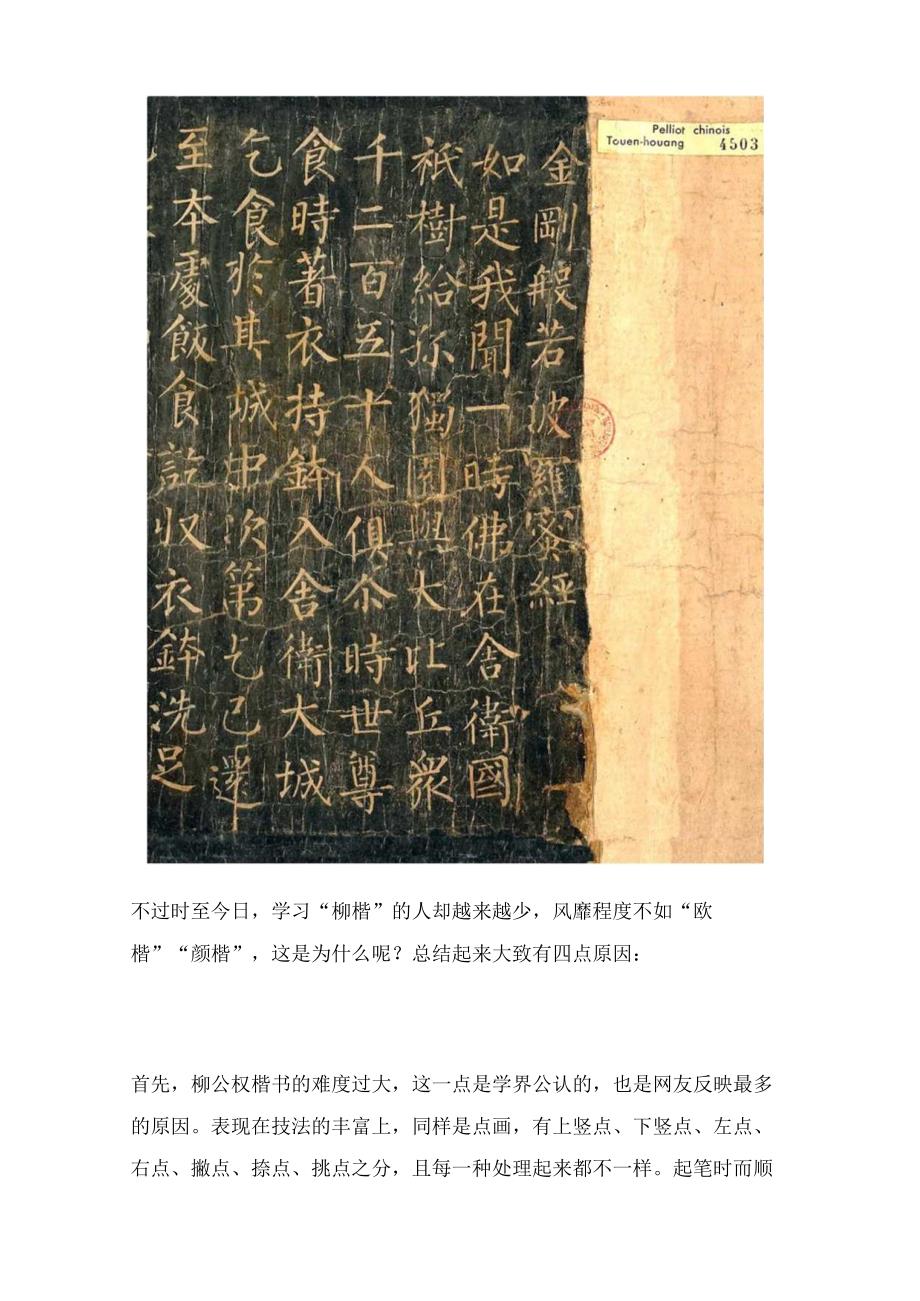 Pelliot chinois
Touen-houang 4503
金剛般若波羅蜜經
如是我聞一時佛在舍衛國
祇樹給孤獨園與大比丘眾
千二百五十人俱尒時世尊
食時著衣持鉢入舍衛大城
乞食於其城中次第乞已還
至夲處飯食訖収衣鉢洗足
不过时至今日，学习“柳楷”的人却越来越少，风靡程度不如“欧
楷”“颜楷”，这是为什么呢？总结起来大致有四点原因：
首先，柳公权楷书的难度过大，这一点是学界公认的，也是网友反映最多
的原因。表现在技法的丰富上，同样是点画，有上竖点、下竖点、左点、
右点、撇点、捺点、挑点之分，且每一种处理起来都不一样。起笔时而顺